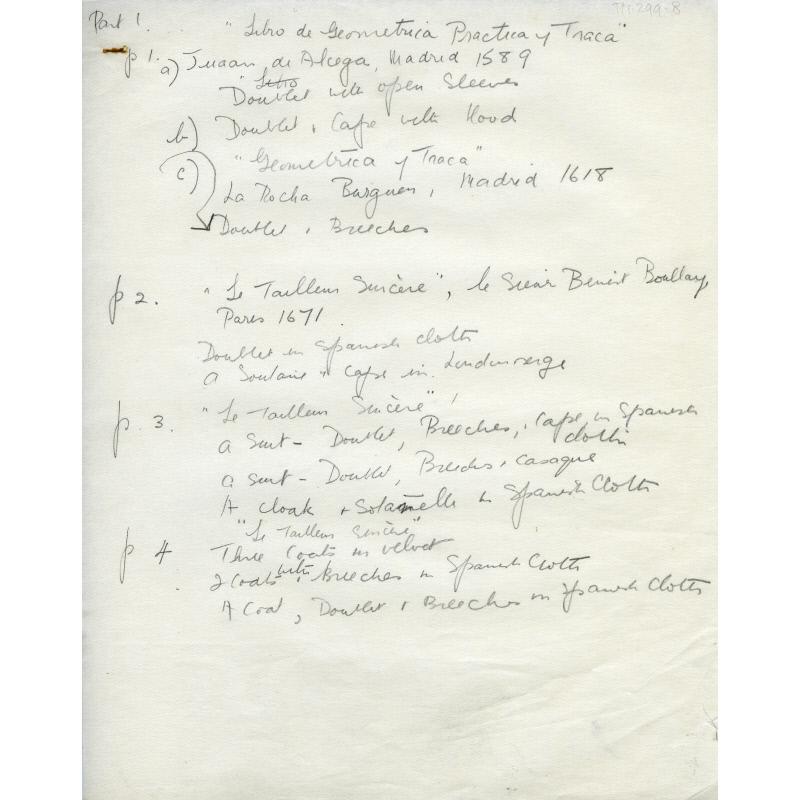 TM:299-8
Part 1. "Libro de Geometrica Practica y Traca"
p 1. a) Juaan de Alcega, Madrid 1589
Libro
Doublet with open Sleeves
b) Doublet & Cape with Hood
c) "Geometrica y Traca"
La Rocha Burguen, Madrid 1618
Doublet & Breeches
p 2. "Le Tailleur Sincère", le Sieur Benist Boullay,
Paris 1671.
Doublet in Spanish cloth
a Soutaine & Cape in London serge
p. 3. "Le Tailleur Sincère",
a Suit - Doublet, Breeches, & Cape in Spanish
cloth
a suit - Doublet, Breeches & Casaque
A cloak & Solanelle in Spanish Cloth
"Le Tailleur Sincère"
p 4 Three Coats in velvet
2 Coats with Breeches in Spanish Cloth
A Coat, Doublet & Breeches in Spanish Cloth